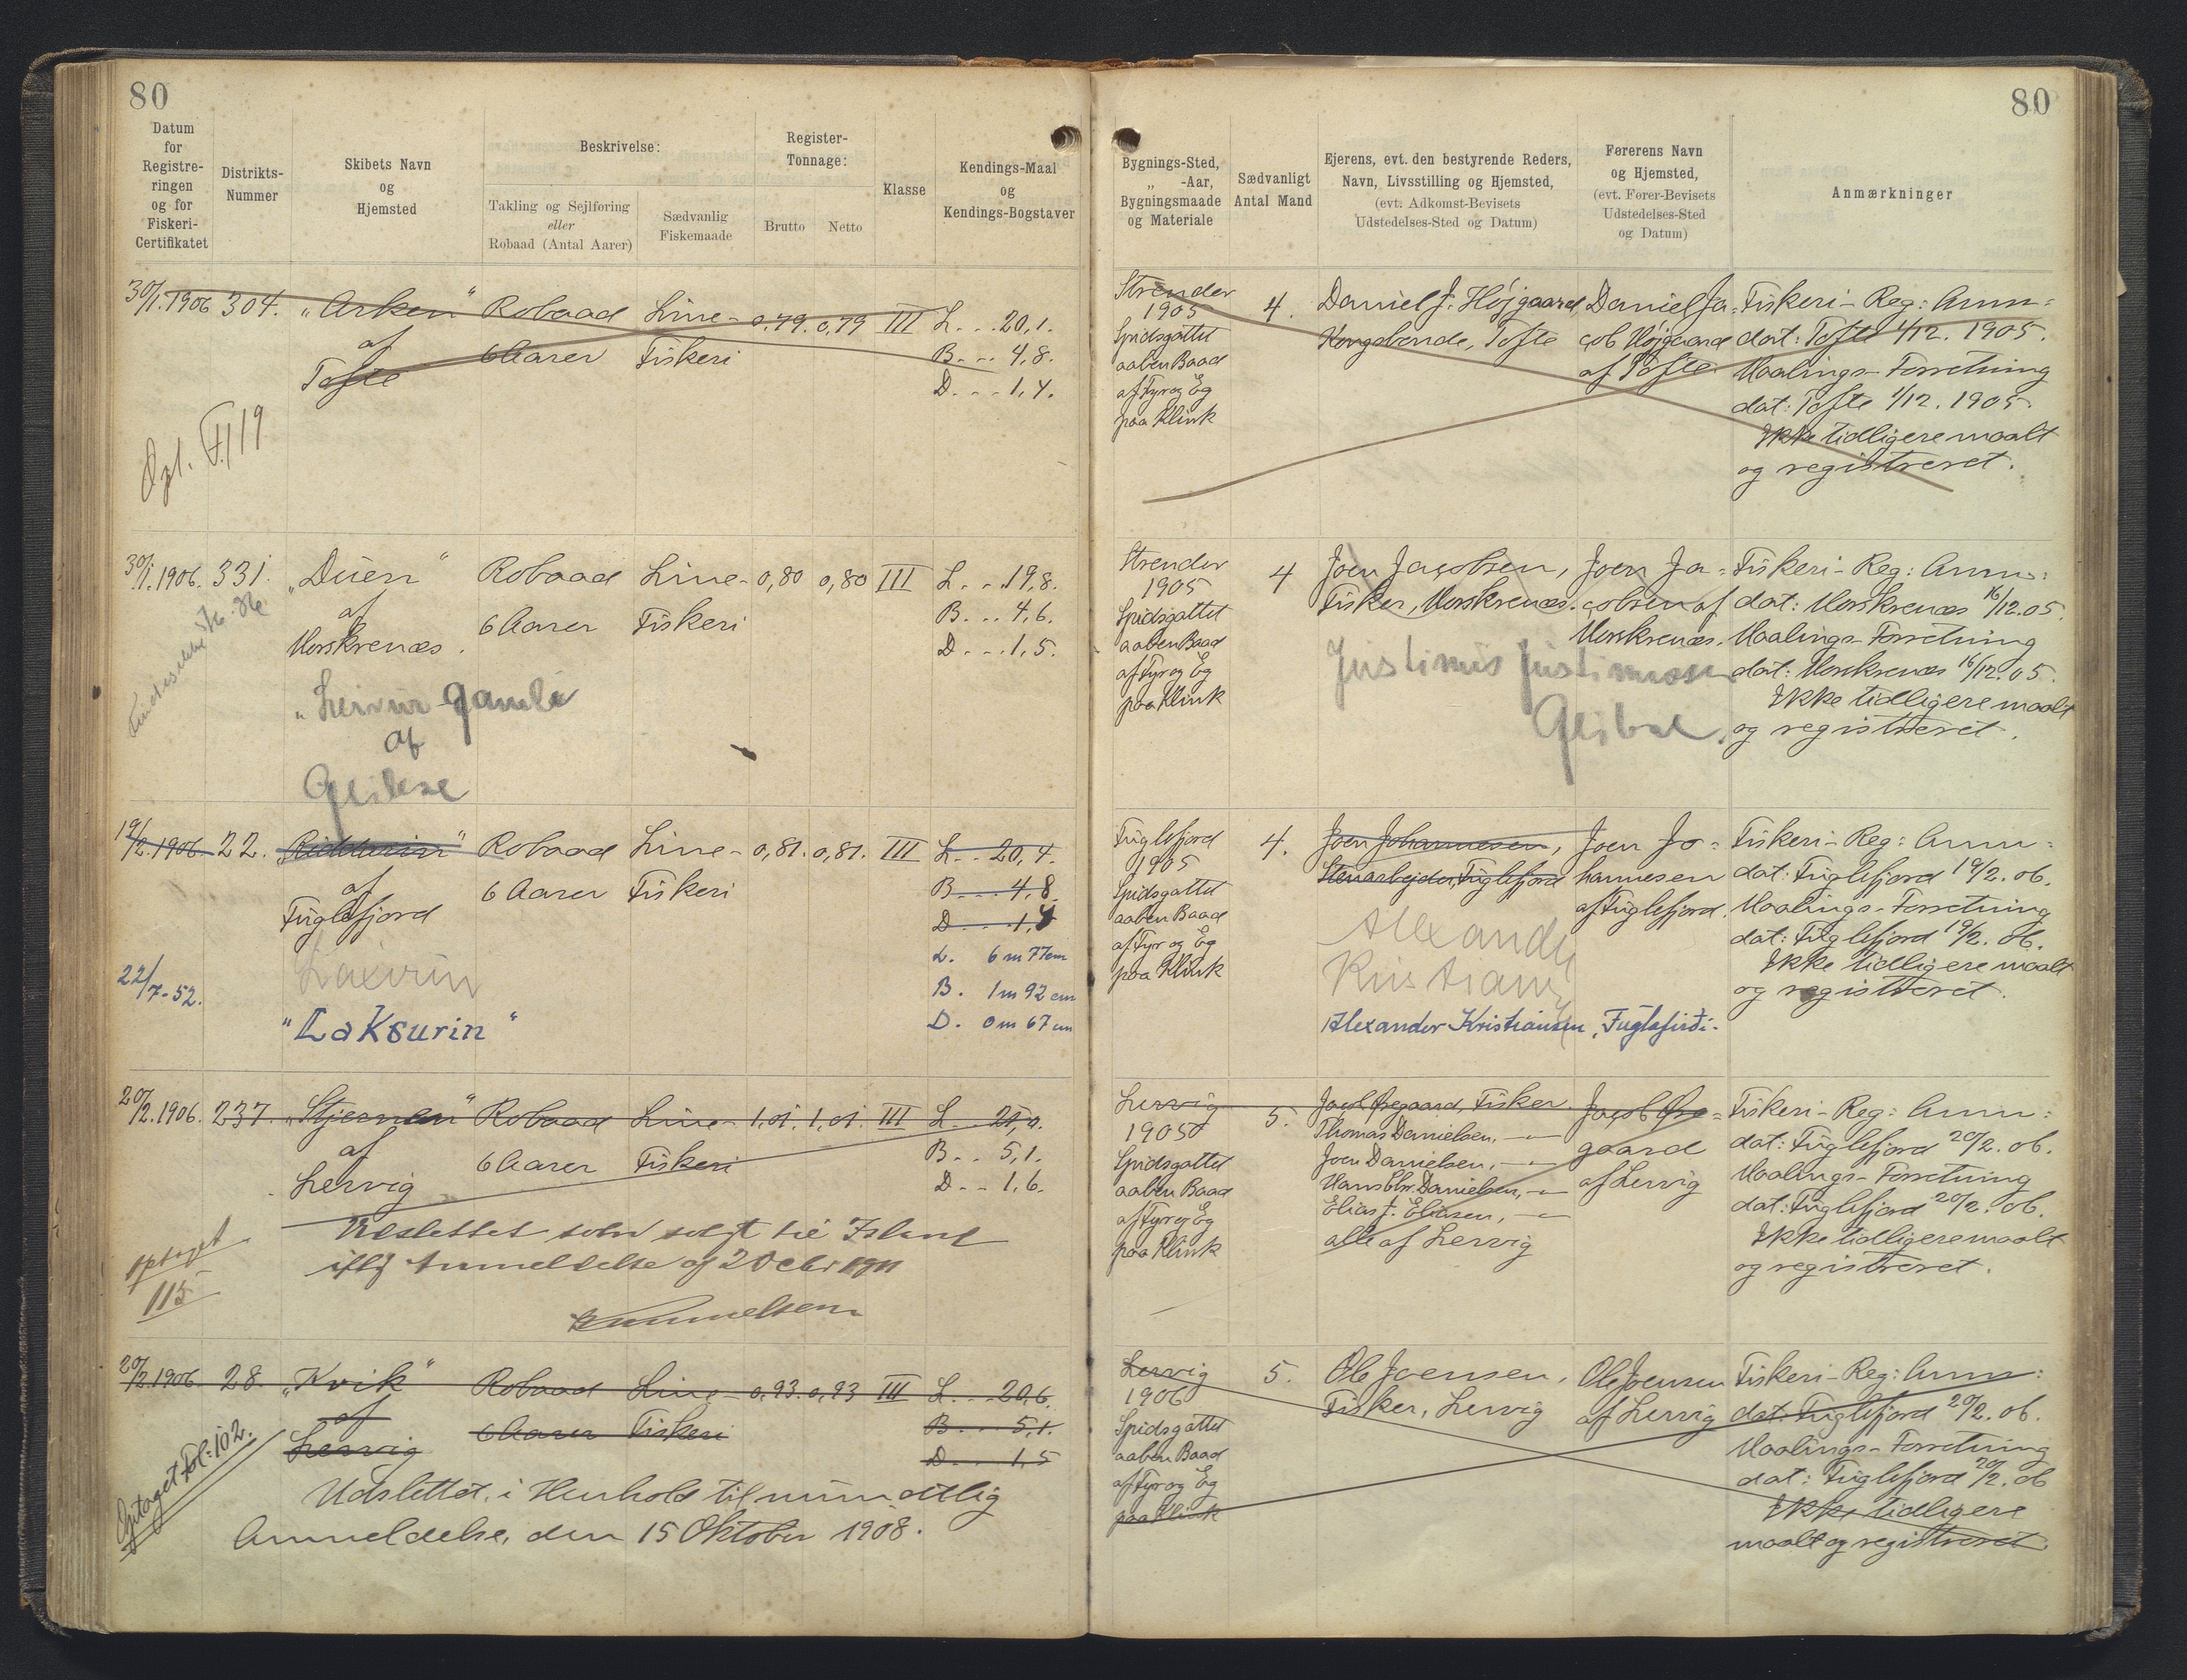 80
80
Datum
for
Registre-
ringen
og for
Fiskeri-
Certifikatet
Distrikts-
Nummer
Skibets Navn
og
Hjemsted
Beskrivelse:
Takling og Sejlføring
eller
Robaad (Antal Aarer)
Sædvanlig
Fiskemaade
Register-
Tonnage:
Brutto
Netto
Klasse
Kendings-Maal
og
Kendings-Bogstaver
Bygnings-Sted,
„ -Aar,
Bygningsmaade
og Materiale
Sædvanligt
Antal Mand
Ejerens, evt. den bestyrende Reders,
Navn, Livsstilling og Hjemsted,
(evt. Adkomst-Bevisets
Udstedelses-Sted og Datum)
Førerens Navn
og Hjemsted,
(evt. Fører-Bevisets
Udstedelses-Sted
og Datum)
Anmærkninger
30/1. 1906 304. „Arken" Robaad Line- 0,79. 0,79 III L...20,1.
af 6 Aarer Fiskeri B... 4,8.
Tofte D... 1,4.
Strender
1905
Spidsgattet
aaben Baad
af Fyr og Eg
paa Klink
4.
Daniel J. Højgaard,
Kongsbonde, Tofte
Daniel Ja-
cob Højgaard
af Tofte
Fiskeri-Reg: Anm:
dat: Tofte 1/12. 1905.
Maalings-Forretning
dat: Tofte 1/12. 1905.
Ikke tidligere maalt
og registreret.
30/1. 1906. 331. „Duen" Robaad Line- 0,80 0,80 III L...19,8.
af 6 Aarer Fiskeri B... 4,6.
Morskrenæs. D... 1,5.
gamli
af
Strender
1905
Spidsgattet
aaben Baad
af Fyr og Eg
paa Klink
4
Joen Jacobsen,
Fisker, Morskrenæs.
Justinus Justinussen
Joen Ja-
cobsen af
Morskrenæs.
Fiskeri-Reg: Anm:
dat: Morskrenæs 16/12.05.
Maalings-Forretning
dat: Morskrenæs 16/12.05.
Ikke tidligere maalt
og registreret.
19/2. 1906. 22. „Ridderin" Robaad Line- 0,81. 0,81. III L.. 20,4.
af 6 Aarer Fiskeri B... 4,8.
Fuglefjord D... 1,4
L. 6 m 77 cm
22/7-52. B. 1 m 92 cm
"Laksurin" D. 0 m 67 cm
Fuglefjord
1905
Spidsgattet
aaben Baad
af Fyr og Eg
paa Klink
4.
Joen Johannesen,
Stenarbejder, Fuglefjord
Alexander
Kristians
Alexander Kristiansen, Fuglafirði.
Joen Jo-
hannesen
af Fuglefjord.
Fiskeri-Reg: Anm:
dat: Fuglefjord 19/2. 06.
Maalings-Forretning
dat: Fuglefjord 19/2. 06.
Ikke tidligere maalt
og registreret.
20/2. 1906. 237. „Stjernen" Robaad Line- 1,01. 1,01. III L.. 21,0.
af 6 Aarer Fiskeri B.. 5,1.
Lervig D.. 1,6.
Udslettet som solgt til Island
iflg Anmeldelse af 2 Octbr 1911
optaget
115
Lervig
1905
Spidsgattet
aaben Baad
af Fyr og Eg
paa Klink
5.
Jacob Øregaard, Fisker.
Thomas Danielsen, -"-
Joen Danielsen, -"-
Hans Chr. Danielsen, -"-
Elias J. Eliasen, -"-
alle af Lervig
Jacob Øre-
gaard
af Lervig
Fiskeri-Reg: Anm:
dat: Fuglefjord 20/2. 06.
Maalings-Forretning
dat: Fuglefjord 20/2. 06.
Ikke tidligere maalt
og registreret.
20/2. 1906. 28. „Kvik" Robaad Line- 0,93. 0,93 III L... 20,6.
af 6 Aarer Fiskeri B... 5,1.
Lervig D... 1,5
Udslettet i Henhold til mundtlig
Anmeldelse, den 15 Oktober 1908.
Optaget Fol: 102.
Lervig
1906
Spidsgattet
aaben Baad
af Fyr og Eg
paa Klink
5.
Ole Joensen,
Fisker, Lervig
Ole Joensen
af Lervig
Fiskeri-Reg: Anm:
dat: Fuglefjord 20/2. 06.
Maalings-Forretning
dat: Fuglefjord 20/2. 06
Ikke tidligere
maalt og registreret